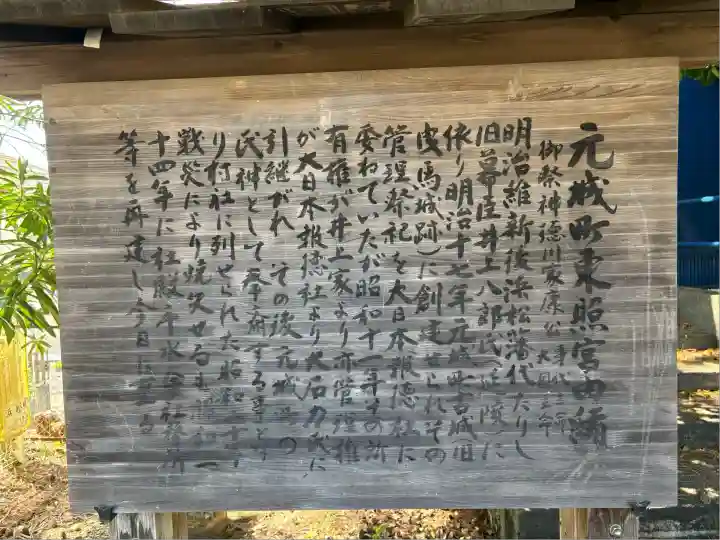 元城町東照宮由緒
御祭神徳川家康公 事代主命 大国主命
明治維新後浜松藩代たりし
旧幕臣井上八郎氏(延陵)に
依り明治十七年元城町古城(旧
曳馬城跡)に創建せられその
管理祭祀を大日本報徳社に
委ねていたが昭和十一年その所
有権が井上家より亦管理権
が大日本報徳社より大石力氏に
引継がれ その後元城町の
氏神として奉斎する事とな
り村社に列せられた昭和二十
戦災により焼失せるも昭和三
十四年に社殿手水舎社務所
等を再建し今日に至る